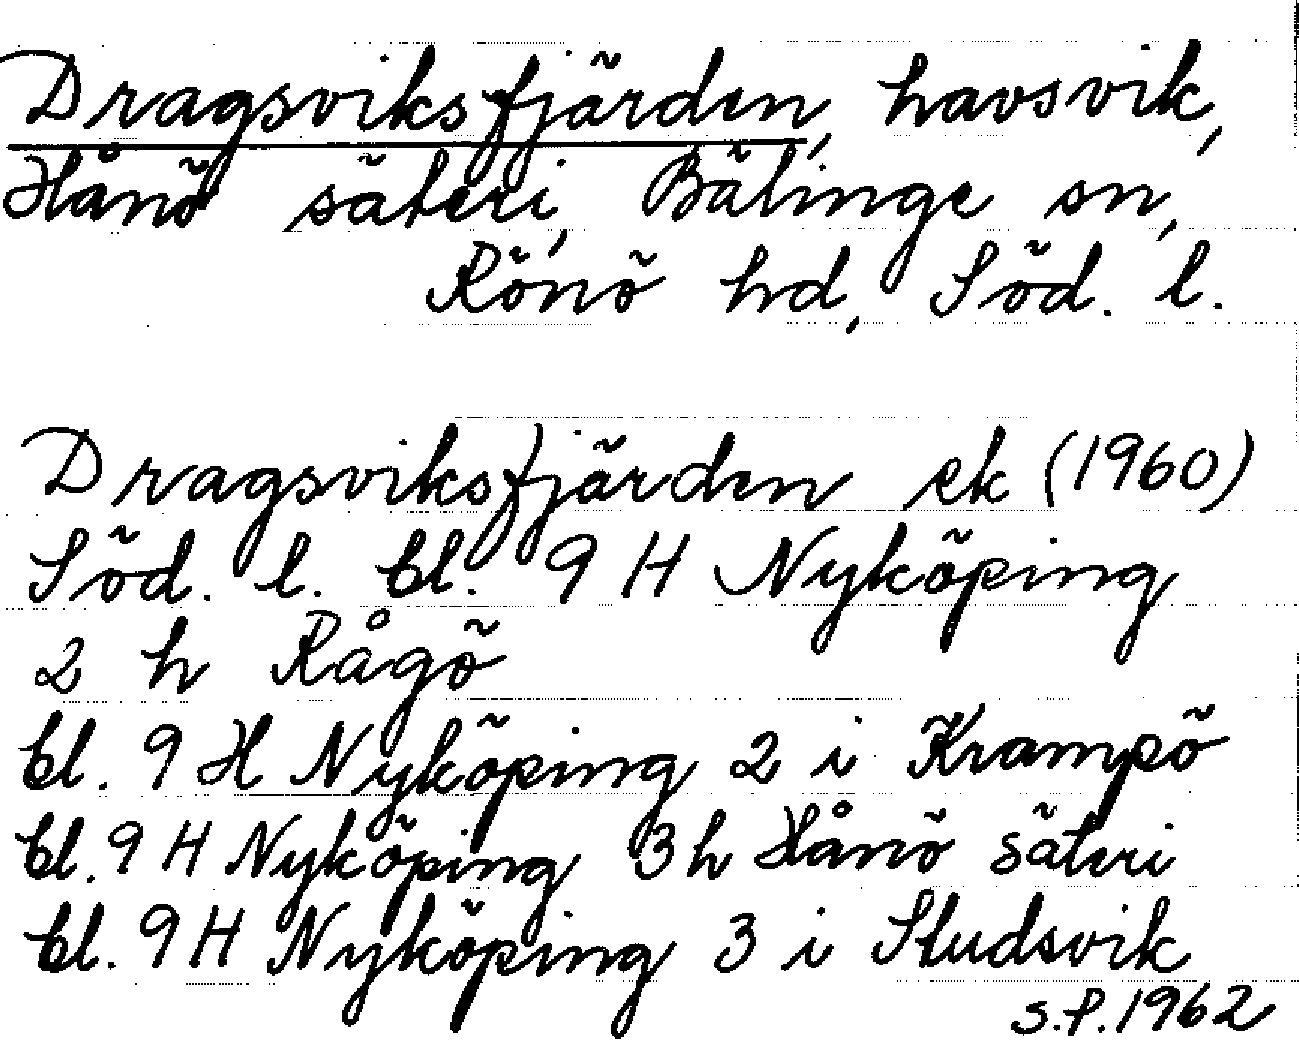 Dragsviksfjärden, havsvik,
Hånö säteri, Bälinge sn,
Rönö hd, Söd. l.
Dragsviksfjärden ek (1960)
Söd. l. bl. 9 H Nyköping
2 h Rågö
bl. 9 H Nyköping 2 i Krampö
bl. 9 H Nyköping 3 h Hånö säteri
bl. 9 H Nyköping 3 i Studsvik
S.P. 1962